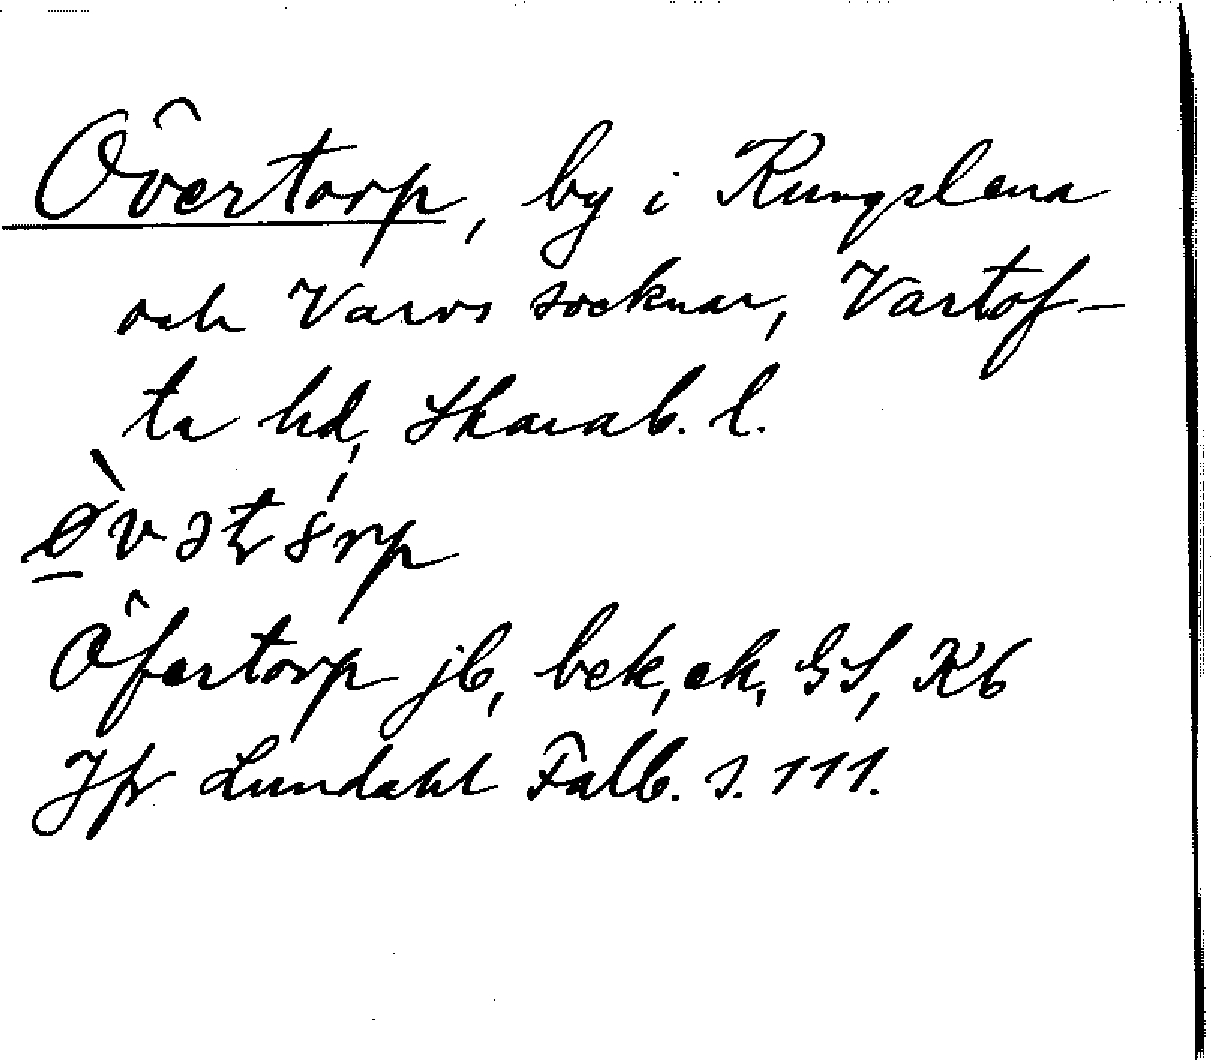 Övertorp, by i Kungslena
och Varvs socknar, Vartof-
ta hd, Skarab. l.
Öfvertorp jb, bek, ek, GS, Kb
Jfr Lundahl Falb. s. 111.